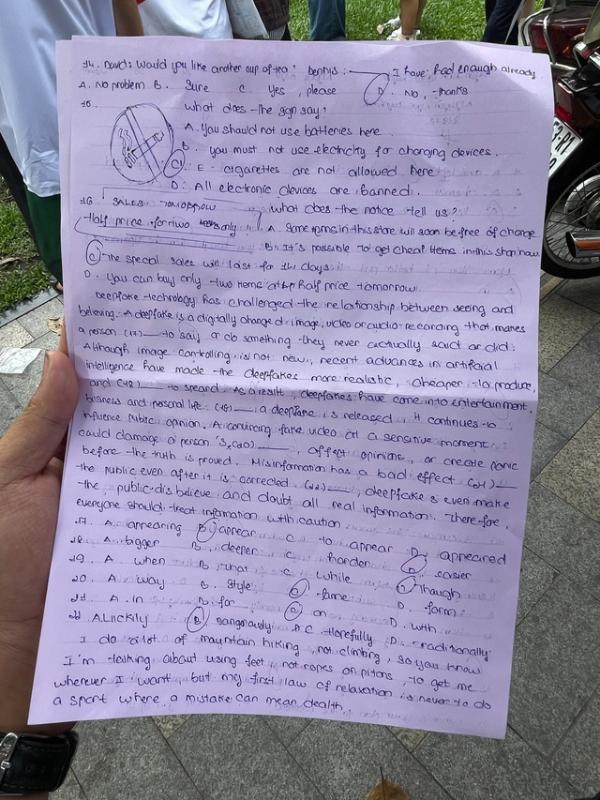 14. David: Would you like another cup of tea? Dennys: I have had enough already
A. No problem B. Sure C. Yes, please D. No, thanks
15. What does the sign say?
A. You should not use batteries here
B. you must not use electricity for changing devices.
C. E-cigarettes are not allowed here
D. All electronic devices are banned.
16. SALES TOMORROW What does the notice tell us?
Half price for two only A. Some items in this store will soon be free of charge
B. It's possible to get cheap items in this shop now
C. The special sales will last for days
D. You can buy only two items at half price tomorrow
Deepfake technology has challenged the relationship between seeing and
believing. A deepfake is a digitally changed image, video or audio recording that makes
a person (17) to say or do something they never actually said or did.
Although image controlling is not new, recent advances in artificial
intelligence have made the deepfakes more realistic, cheaper to produce,
and (18) to spread. As a result, deepfakes have come into entertainment,
business and personal life. (19) a deepfake is released, it continues to
influence public opinion. A convincing fake video at a sensitive moment
could damage a person's (20), affect opinions, or create panic
before the truth is proved. Misinformation has a bad effect (21)
the public even after it is corrected. (22), deepfakes even make
the public disbelieve and doubt all real information. Therefore,
everyone should treat information with caution
17. A. appearing B. appear C. to appear D. appeared
18. A. bigger B. deeper C. harder D. easier
19. A. when B. what C. while D. though
20. A. way B. style C. fame D. form
21. A. in B. for C. on D. with
22. A. Luckily B. Dangerously C. Hopefully D. Traditionally
I do a lot of mountain hiking, not climbing, so you know
I'm talking about using feet, not ropes or pitons, to get me
wherever I want, but my first law of relaxation is never to do
a sport where a mistake can mean death.